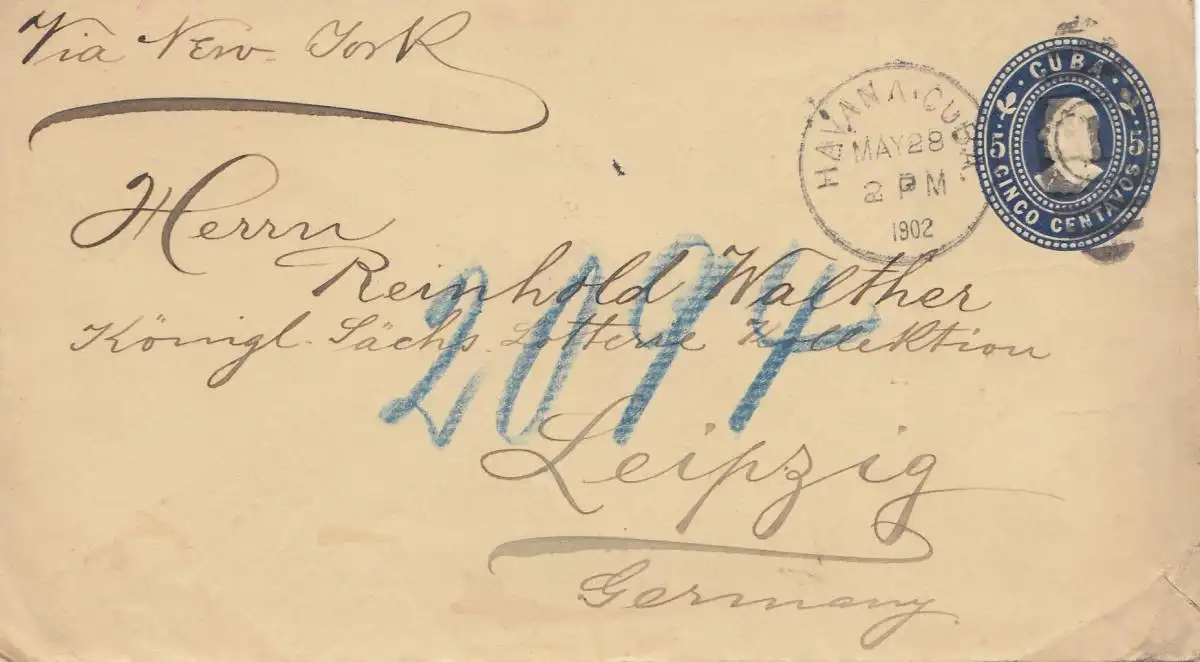 Via New-York
CUBA
5 5
CINCO CENTAVOS
HAVANA·CUBA.
MAY28
2 PM
1902
Herrn
Reinhold Walther
Königl. Sächs. Lotterie Kollektion
2094
Leipzig
Germany